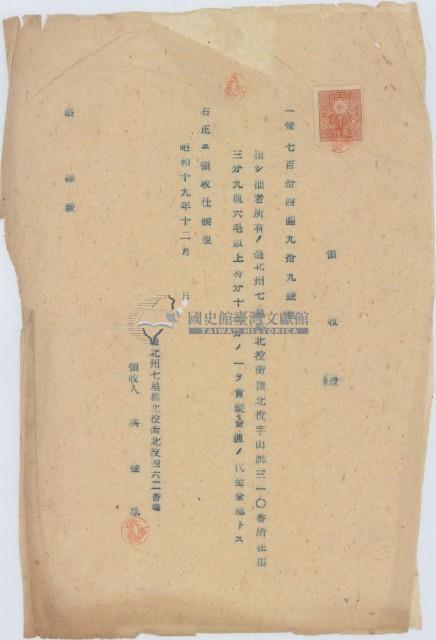 領收證
一金七百拾四圓九拾九錢
但シ拙者所有ノ臺北州七星郡北投街頂北投字山腳三一〇番所在田
三分九厘六毛以上持分十分ノ一ヲ賣渡ノ代金全部トス
右正ニ領收仕候也
昭和十九年十二月 日
臺北州七星郡北投街北投四六二番地
領收人
殿
國史館臺灣文獻館
TAIWAN HISTORICA